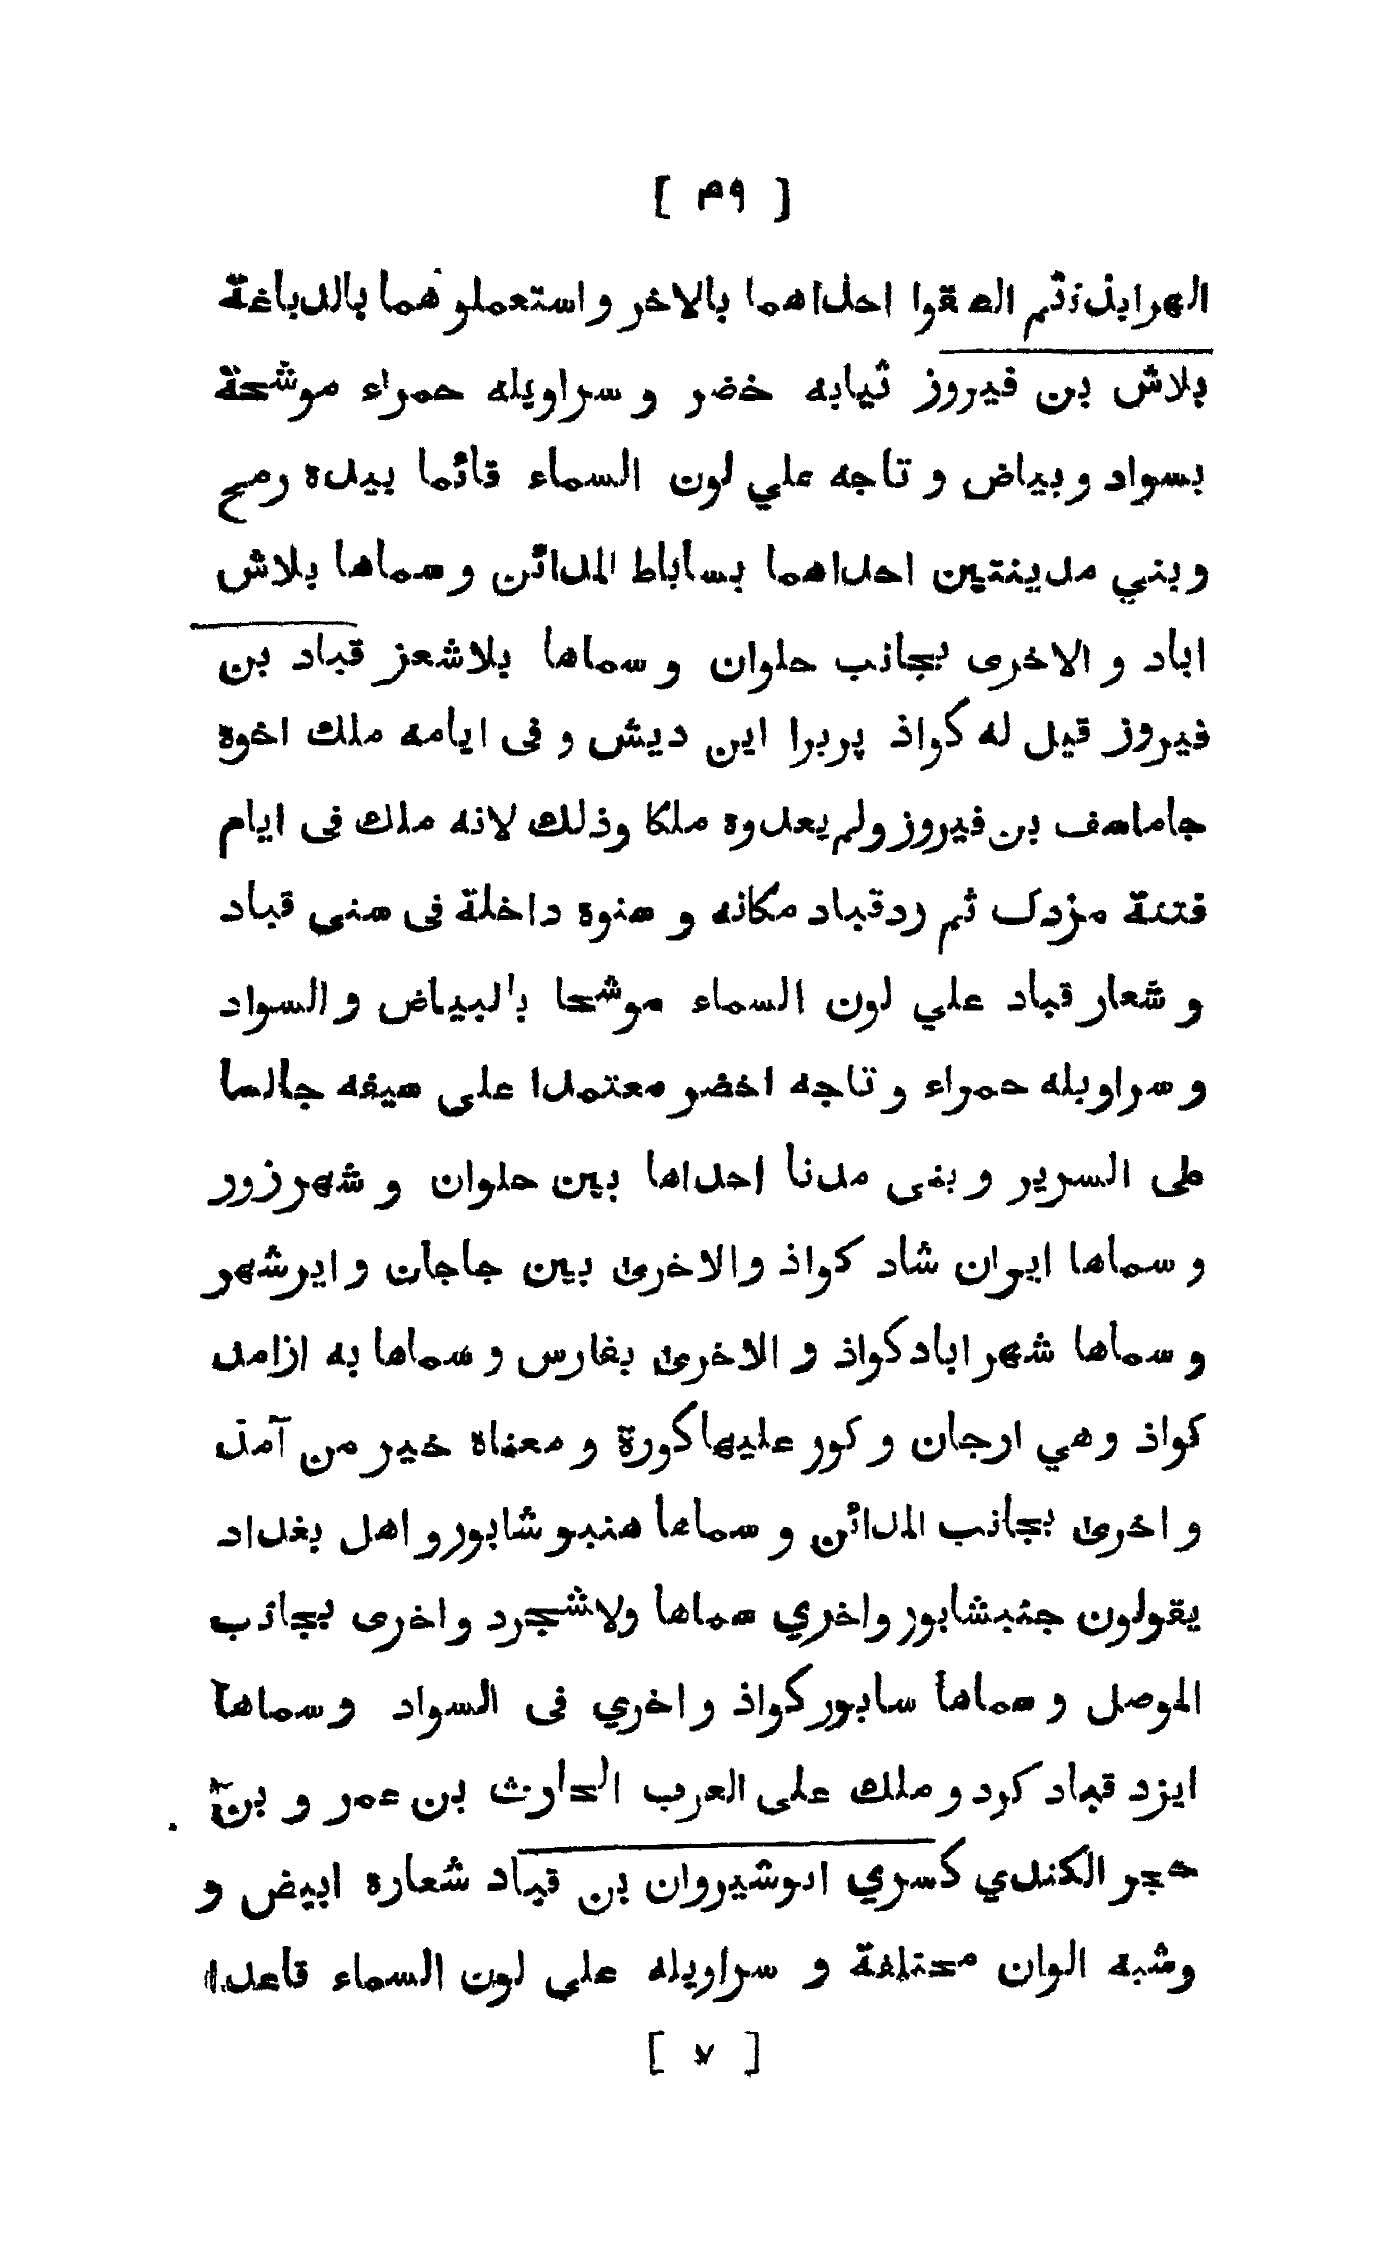 [ ٤٩ ]
الهرابذة ثم الصقوا احداهما بالاخر واستعملوهما بالدباغة
بلاش بن فيروز ثيابه خضر و سراويله حمراء موشحة
بسواد وبياض و تاجه علي لون السماء قائما بيده رمح
وبني مدينتين احداهما بساباط المدائن وسماها بلاش
اباد و الاخرى بجانب حلوان و سماها بلاشعز قباد بن
فيروز قيل له كواذ پربرا اين ديش و فى ايامه ملك اخوة
جاماسف بن فيروز ولم يعدوه ملكا وذلك لانه ملك فى ايام
فتنة مزدك ثم ردقباد مكانه و سنوه داخلة فى سنى قباد
و شعار قباد علي لون السماء موشحا بالبياض والسواد
و سراويله حمراء و تاجه اخضر معتمدا على سيفه جالسا
على السرير وبنى مدنا احداها بين حلوان و شهرزور
و سماها ايران شاد كواذ والاخرى بين جاجان وايرشهر
و سماها شهرابادكواذ و الاخرى بفارس و سماها به ازامد
كواذ وهي ارجان و كور عليهاكورة و معناه خير من آمد
و اخرى بجانب المدائن و سماها هنبو شابور و اهل بغداد
يقولون جنبشابور واخري سماها ولاشجرد واخرى بجانب
الموصل و سماها سابوركواذ واخري فى السواد وسماها
ايزد قباد كرد و ملك على العرب الحارث بن عمر و بن
حجر الكندي كسري انوشيروان بن قباد شعاره ابيض و
وشبه الوان مختلفة و سراويله على لون السماء قاعدا
[ ٧ ]